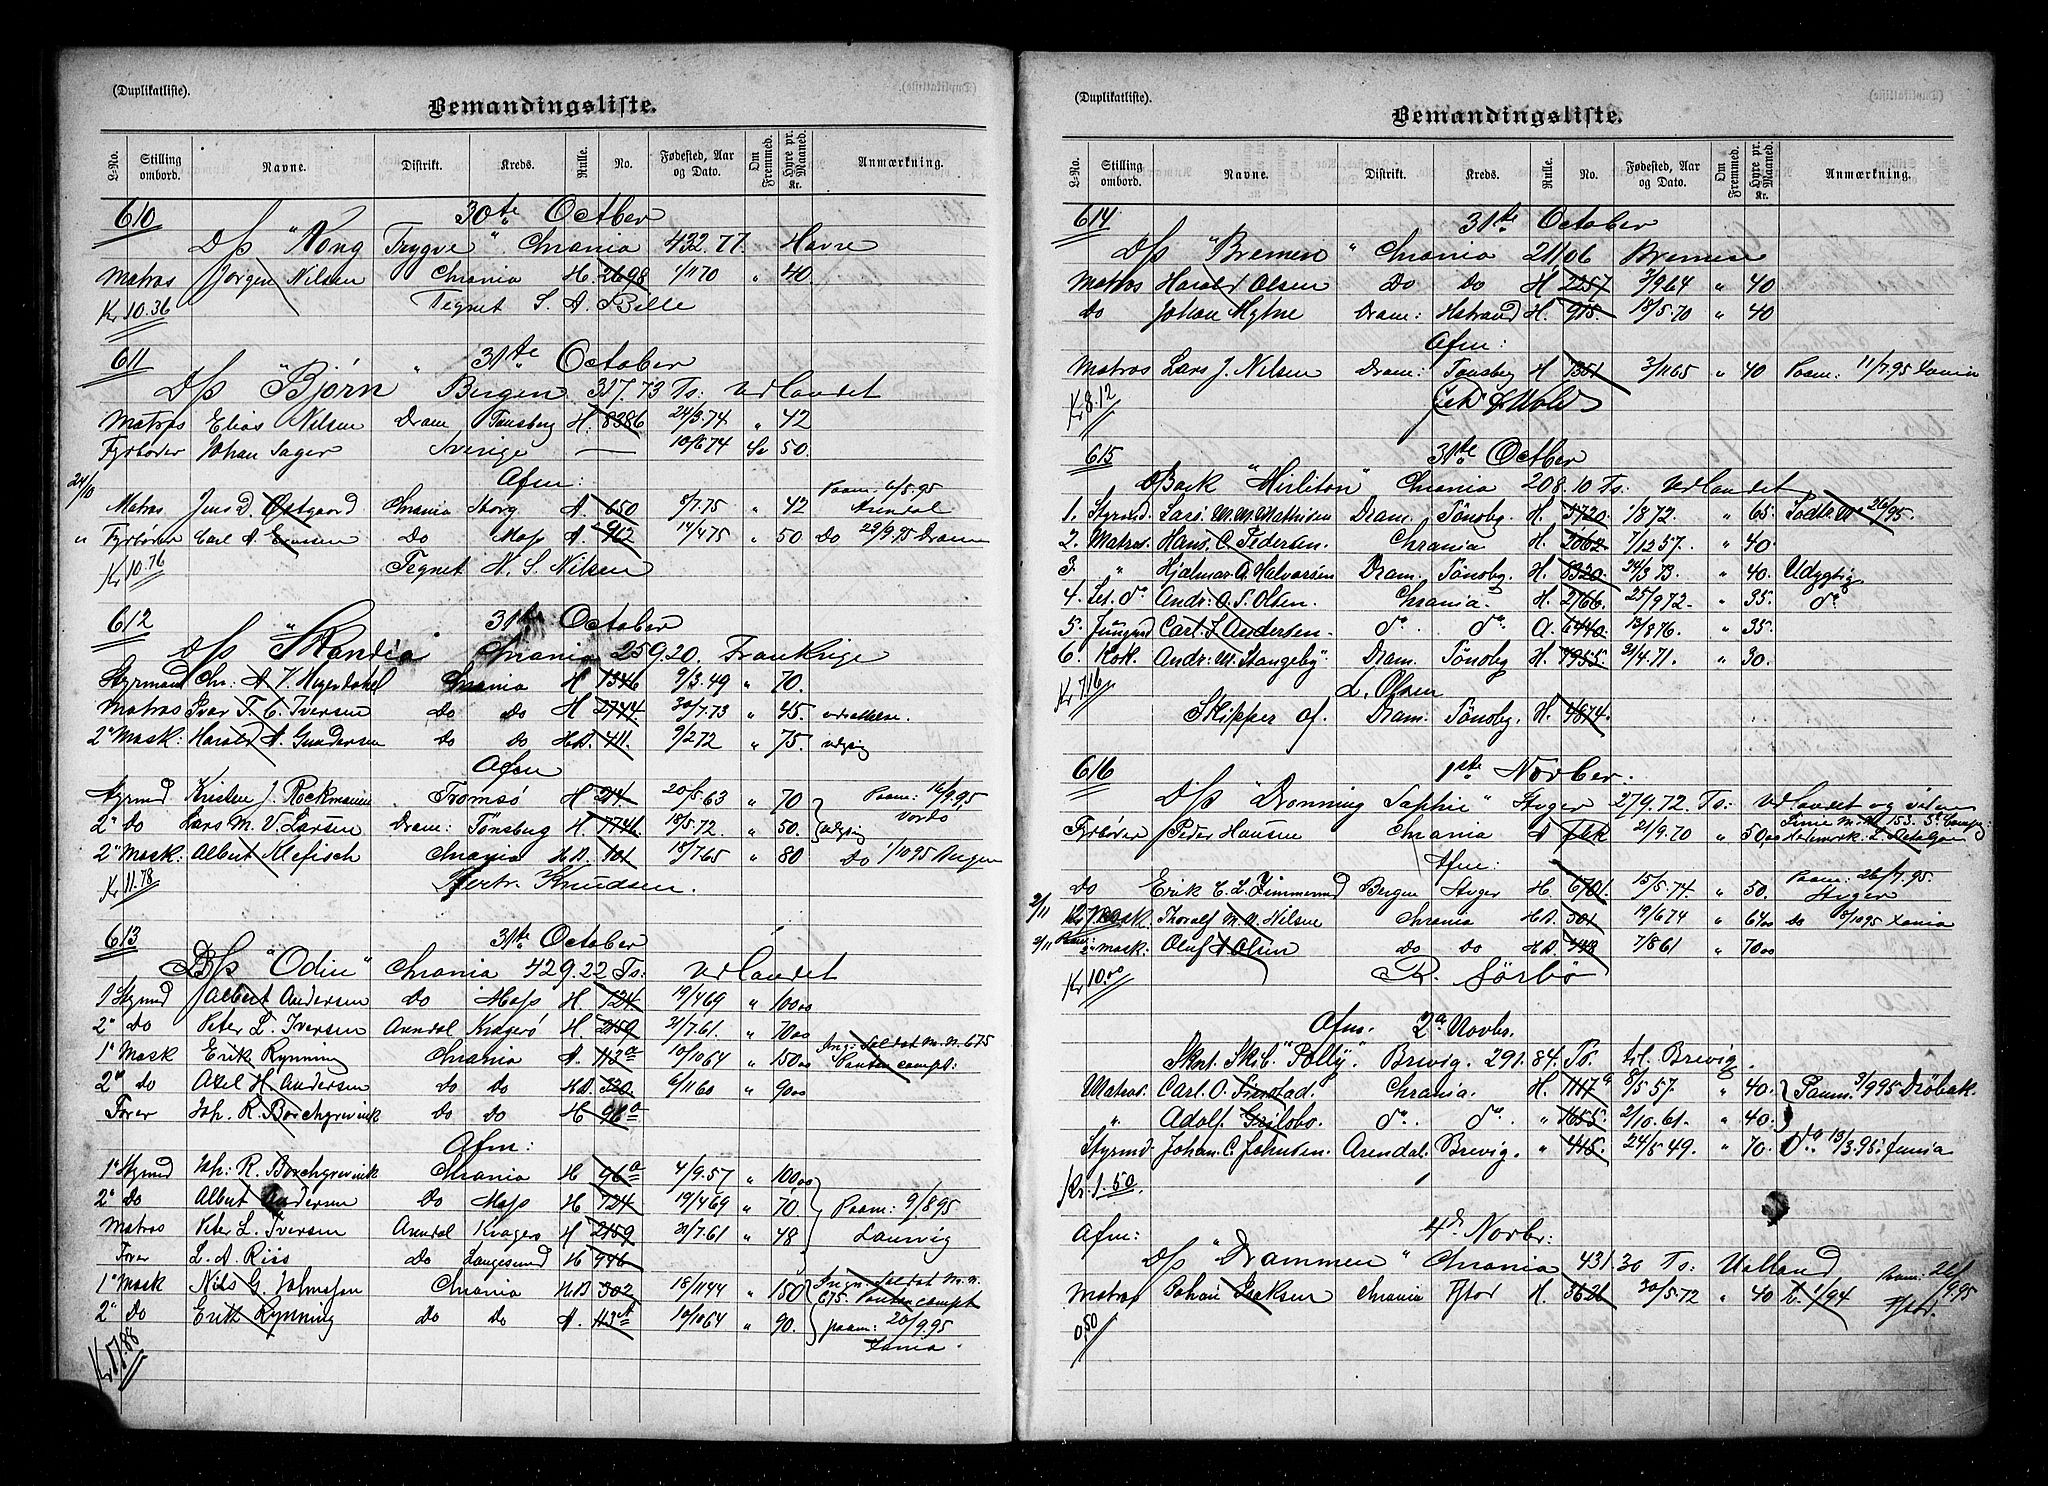 (Duplikatliste).
Bemandingsliste.
L-No. Stilling ombord. Navne. Distrikt. Kreds. Rulle. No. Fødested, Aar og Dato. Om Fremmed. Hyre pr. Maaned. Kr. Anmærkning.
610 30te October
D/s "Kong Trygve" Chrania 432.77. Havre
Matros Jørgen Nilsen Chrania H. 2698 1/11 70 " 40.
Kr 10.36 Tegnet S. A. Bille
611 31te October
D/s "Bjørn" Bergen 317.73 Ts: Udlandet
Matros Elias Nilsen Dram Tønsberg H. 8386 24/3.74 " 42
Fyrbøder Johan Sager Sverige — 10/6 74 Sv 50.
24/10 Afm:
Matros Jens D. Østgaard Chrania A. 650 8/7.75 " 42 Paam. 6/5.95 Arendal
" Fyrbøder Carl A. Do Moss A. 962 14/4 75 " 50 Do 29/9.95 Dram
Kr 10.76 Tegnet N. S. Nilsen
612 31te October
D/s "Skandia" Chrania 259.20. Frankrige
Styrmand Chr: A. T. Heyerdahl Chrania H 1346 9/3.49 " 70.
Matros Ivar T. C. Iversen Do Do H 2744. 30/7.73 " 45.
2" Mask: Harald A. Gundersen Do Do H.D. 411. 9/2 72 " 75. udgtig
Afm
Styrmd Kristen J. Rockmann Tromsø H 214 20/5 63 " 70 Paam: 12/9.95 Vardø
2" Do Lars M. V. Larsen Dram: Tønsberg H. 7746. 18/5.72. " 50. udgtig
2" Mask: Albert Klefisch Chrania H.D. 101 18/7 65 " 80 Do 1/10 95 Bergen
Kr 11.78 Bertr. Knudsen.
613 31te October
D/s "Odin" Chrania 429.22 Ts: Udlandet
1 Styrmd Albert Andersen Do Moss H 724. 19/4 69 " 100 00
2" Do Peter L. Iversen Arendal Kragerø H 2159 21/7.61. " 70 00
1" Mask Erik Rynning Chrania A. 113a 10/10 64 " 150 00 Ing: Soldat M. N. 675 Ponton compt:
2" Do Axel H. Andersen do do H.D. 320. 6/11 60 " 90 00
Fører Joh. R. Borchgrevink Do Do H 96a
Afm:
1" Styrmd Joh: R. Borchgrevink Chrania H 96a 4/9.57 " 100 00
2" Do Albert Andersen Do Moss H 724 19/4 69 " 70 Paam: 9/8 95 Laurvig
Matros Peter L. Iversen Arendal Kragerø H 2159 21/7.61 " 48
Fører L. A. Riis Do Langesund H 946
1" Mask Nils G. Johnsson Chrania H.D 302 18/11 44 " 150 Ingn. Soldat M. N. 675. Ponton compt
2" Do Erik Rynning Do Do A. 113a 10/10 64 " 90. paam: 20/9.95 Xania.
Kr 17.88
(Duplikatliste).
Bemandingsliste.
L-No. Stilling ombord. Navne. Distrikt. Kreds. Rulle. No. Fødested, Aar og Dato. Om Fremmed. Hyre pr. Maaned. Kr. Anmærkning.
614 31te October
D/s "Bremen" Chrania 211.06 Bremen
Matros Harald Olsen Do Do H 2257 3/9 64 " 40
Do Johan Do Dram: Hstrand H. 915. 18/5.70 " 40
Afm:
Matros Lars J. Nilsen Dram: Tønsberg H 7351 3/11 65 " 40 Paam: 11/7.95 Xania
Kr 8.12
615 31te Octber
D/Bark "Mirliton" Chrania 208.10 Ts. Udlandet
1. Styrmd. Lars. M. M. Mathisen Dram. Tönsbg. H. 5720. 1/8 72. " 65.
2. Matros. Hans. C. Pedersen. Chrania H. 2062 7/12 57. " 40.
3. " Hjalmar. A. Halvorsen Dram. Tönsbg. H. 8320. 24/3 73. " 40. Udygtig
4. Let. do Andr: O. S. Olsen. Chrania. H. 2766. 25/9 72. " 35. do
5. Jungmd Carl. S. Andersen. do do A. 6440. 10/8 76. " 35.
6. Kok. Andr: M. Stangeby. Dram. Tönsbg H. 7955. 21/4.71. " 30.
Kr 7.16 L. Olsen
Skipper af. Dram. Tönsbg. H. 4874.
616 1ste Novber.
D/s "Dronning Sophie" Stvger 279.72. Ts: Udlandet og
Fyrbøder Peder Hansen Chrania A 21/9.70 " 50,00
Afm:
Do Erik C. L. Zimmermd Bergen Stvger H. 6701. 15/5.74 " 50. Paam. 26/7.95. Stvger
2/11 Mask: Thoralf M. N. Nilsen Chrania H.D. 501 19/6 74 " 64 00 do 8/10 95 Xania
2/11 2" Mask: Oluf A Olsen do do H.D. 7/8 61 " 70 00
Kr 10.00 R. Sörbö
Afm. 2a Novbr.
Skonn. Skib. "Polly". Brevig. 291.84. Ts. til. Brevig.
Matros. Carl. O. Chrania. H. 1117a 8/5 57. " 40. Paam. 3/9 95 Dröbak.
" Adolf. do do " 1655. 2/10.61. " 40.
Styrmd. Johan. C. Johnsen. Arendal. Brevig. " 445. 24/5 49. " 70. do 13/3.95. Xania
Kr. 1.50.
Afm: 4d. Novbr:
D/s "Drammen" Chrania 431.30 Ts: Udland
Matros Johan Isaksen Chrania Fstad H. 3626 30/5.72 " 40 1/94 Paam: 22/1 95 Fstd.
0,50